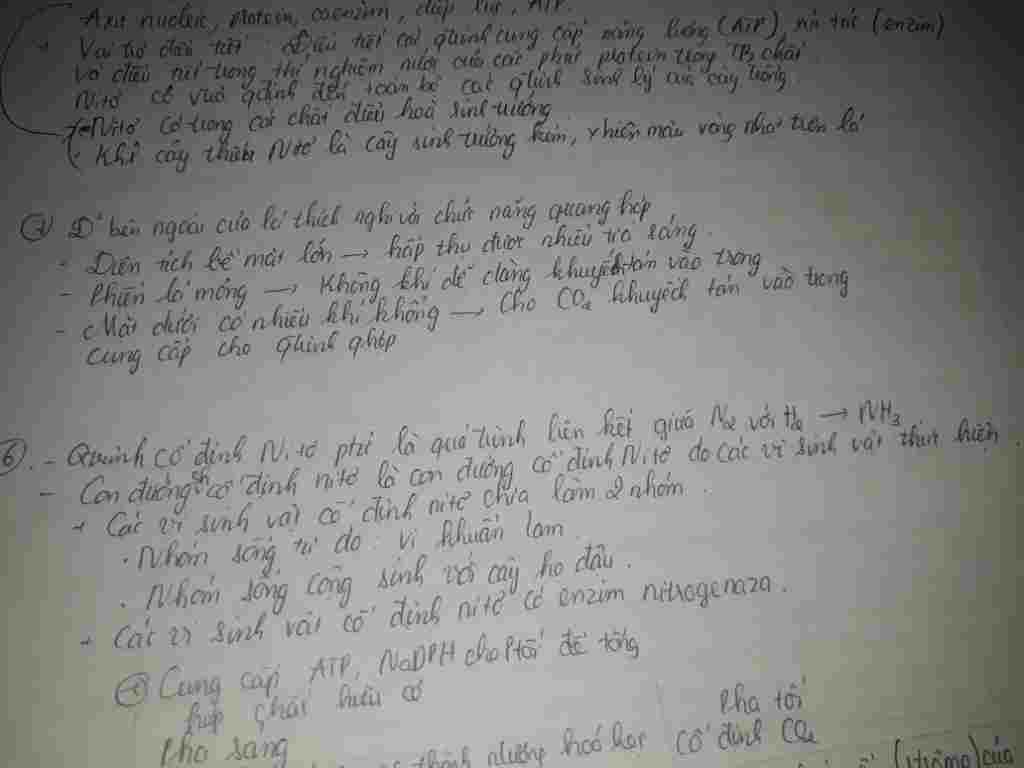 Axit nucleic, protein, coenzim, diệp lục, ATP.
+ Vai trò điều tiết: Điều tiết các qtrình cung cấp năng lượng (ATP), xúc tác (enzim)
và điều tiết trạng thái nước của các phtử protein trong TB chất
Nitơ có đến toàn bộ các qtrình sinh lý của cây trồng
- Nitơ có trong các chất điều hoà sinh trưởng
- Khi cây thiếu Nitơ lá cây sinh trưởng kém, xhiện màu vàng nhạt trên lá
7 Đ² bên ngoài của lá thích nghi với chức năng quang hợp
- Diện tích bề mặt lớn → hấp thu được nhiều tia sáng.
- Phiến lá mỏng → Không khí dễ dàng khuyếch tán vào trong
- Mặt dưới có nhiều khí khổng → Cho CO2 khuyếch tán vào trong
cung cấp cho qtrình qhợp
6. - Qtrình cố định Nitơ ptử là quá trình liên kết giữa N2 với H2 → NH3
- Con đường cố định nitơ là con đường cố định Nitơ do các vi sinh vật thực hiện.
+ Các vi sinh vật cố định nitơ chia làm 2 nhóm.
. Nhóm sống tự do: vi khuẩn lam.
. Nhóm sống cộng sinh với cây họ đậu.
+ Các vi sinh vật cố định nitơ có enzim nitrogenaza.
Cung cấp ATP, NADPH cho Ptối để tổng
hợp chất hữu cơ
Pha sáng
Pha tối
thành nlượng hoá học
cố định CO2
của